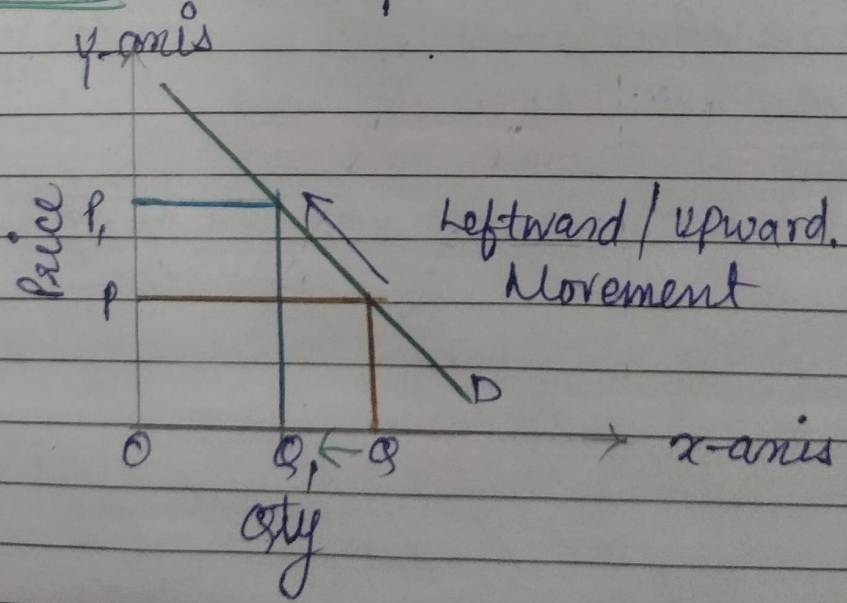 y-axis
Price
P₁
Leftward / Upward.
Movement
P
D
O
Q₁ ← Q
x-axis
Qty